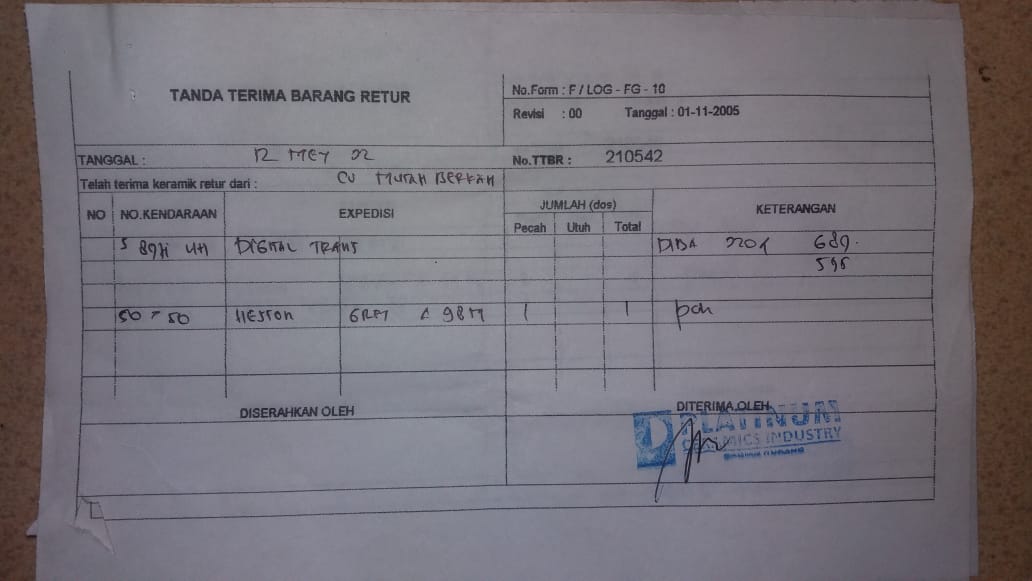 TANDA TERIMA BARANG RETUR
No.Form : F / LOG - FG - 10
Revisi : 00 Tanggal : 01-11-2005
TANGGAL : 12 MEY 22
No.TTBR : 210542
Telah terima keramik retur dari : CV MURAH BERKAH
NO NO.KENDARAAN EXPEDISI JUMLAH (dos) KETERANGAN
Pecah Utuh Total
DIGITAL TRANS 2201 689.
595
50 x 50 HESTON GREY A 98M 1 1 pch
DISERAHKAN OLEH DITERIMA OLEH
PLATINUM
CERAMICS INDUSTRY